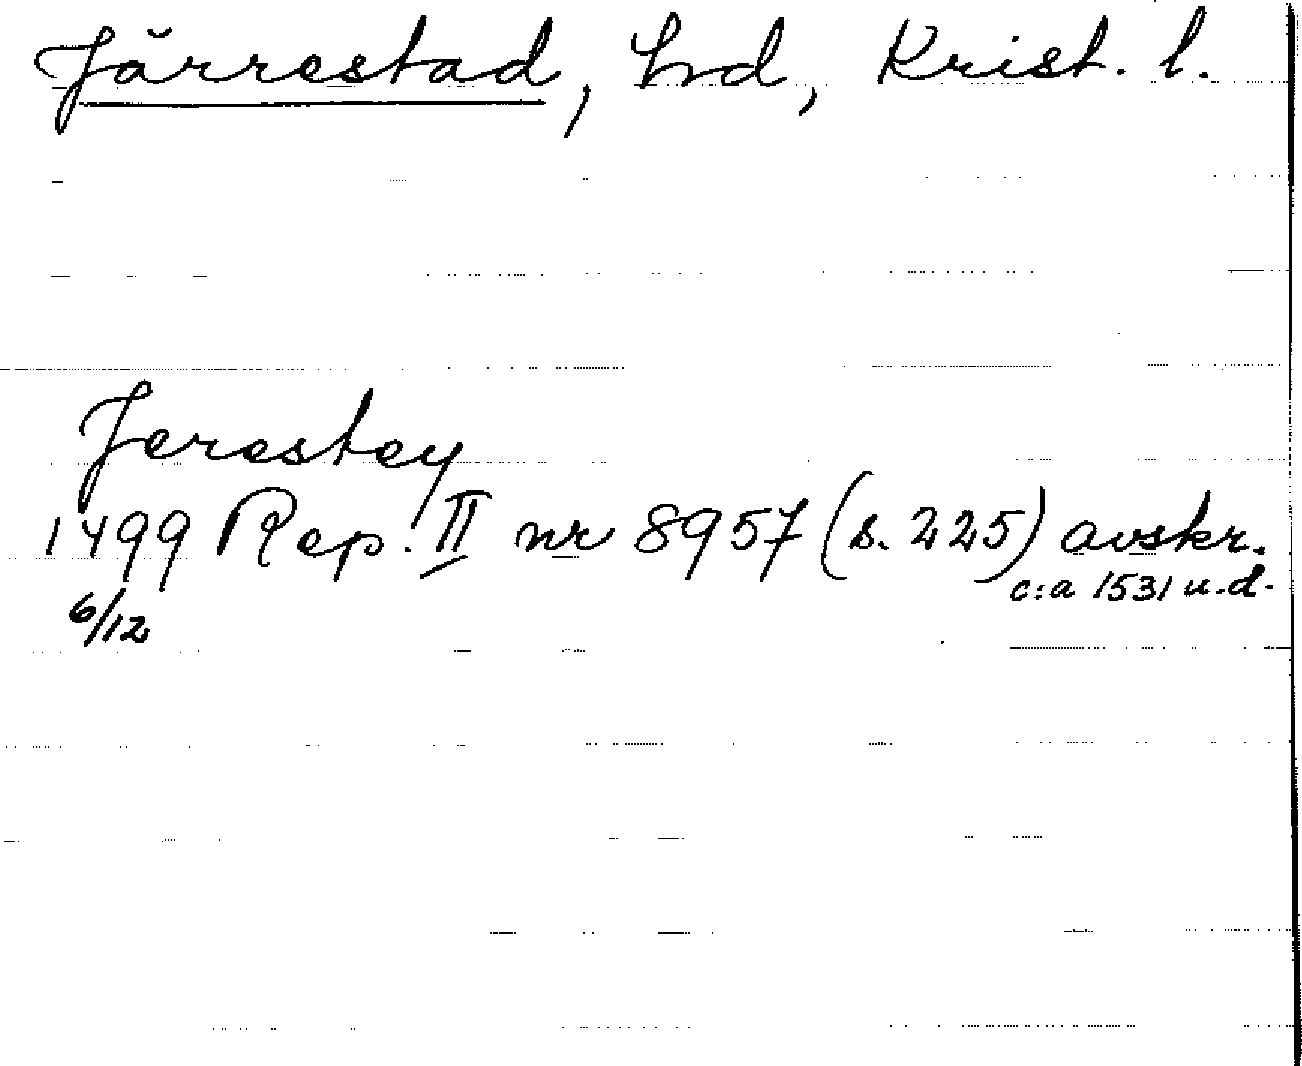 Järrestad, hd, Krist. l.
Jerestey
1499 Rep. II nr 8957 (s. 225) avskr.
c:a 1531 u.d.
6/12